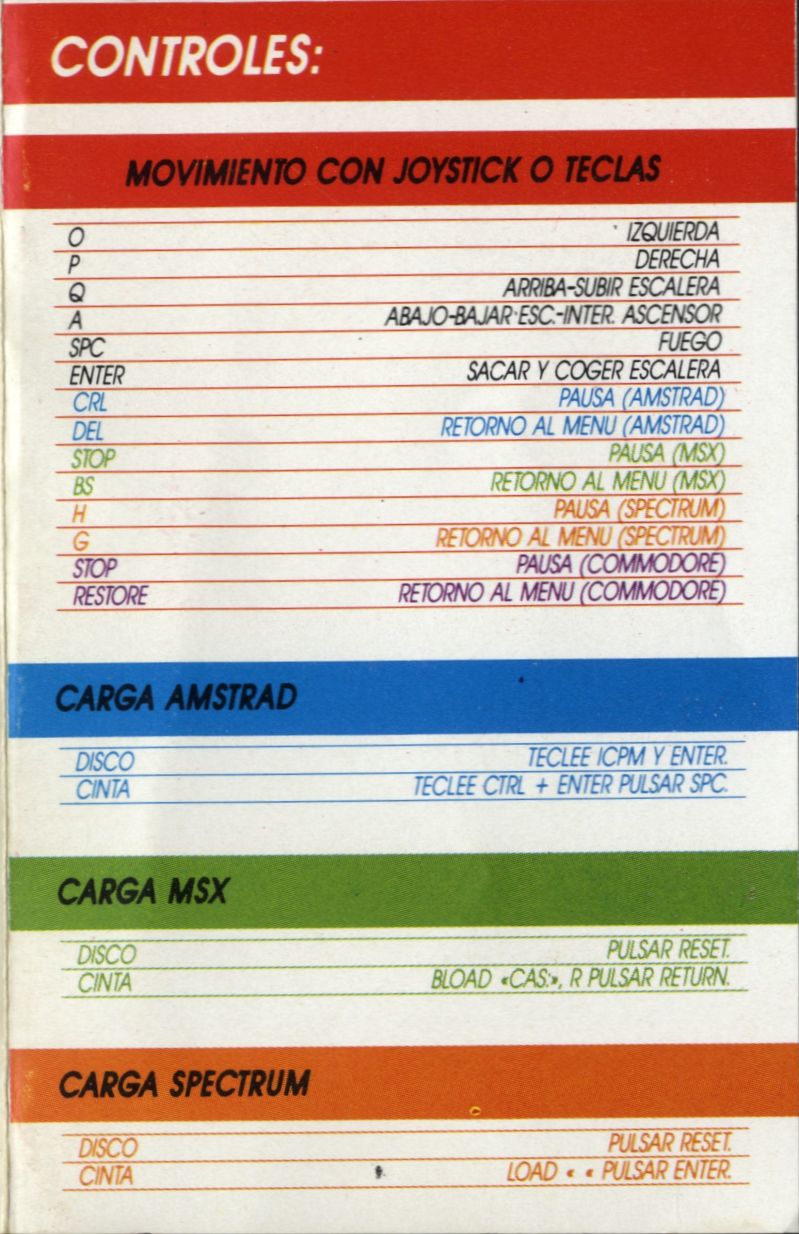 CONTROLES:
MOVIMIENTO CON JOYSTICK O TECLAS
O IZQUIERDA
P DERECHA
Q ARRIBA-SUBIR ESCALERA
A ABAJO-BAJAR ESC.-INTER. ASCENSOR
SPC FUEGO
ENTER SACAR Y COGER ESCALERA
CRL PAUSA (AMSTRAD)
DEL RETORNO AL MENU (AMSTRAD)
STOP PAUSA (MSX)
BS RETORNO AL MENU (MSX)
H PAUSA (SPECTRUM)
G RETORNO AL MENU (SPECTRUM)
STOP PAUSA (COMMODORE)
RESTORE RETORNO AL MENU (COMMODORE)
CARGA AMSTRAD
DISCO TECLEE ICPM Y ENTER.
CINTA TECLEE CTRL + ENTER PULSAR SPC.
CARGA MSX
DISCO PULSAR RESET.
CINTA BLOAD «CAS:», R PULSAR RETURN.
CARGA SPECTRUM
DISCO PULSAR RESET.
CINTA LOAD « « PULSAR ENTER.